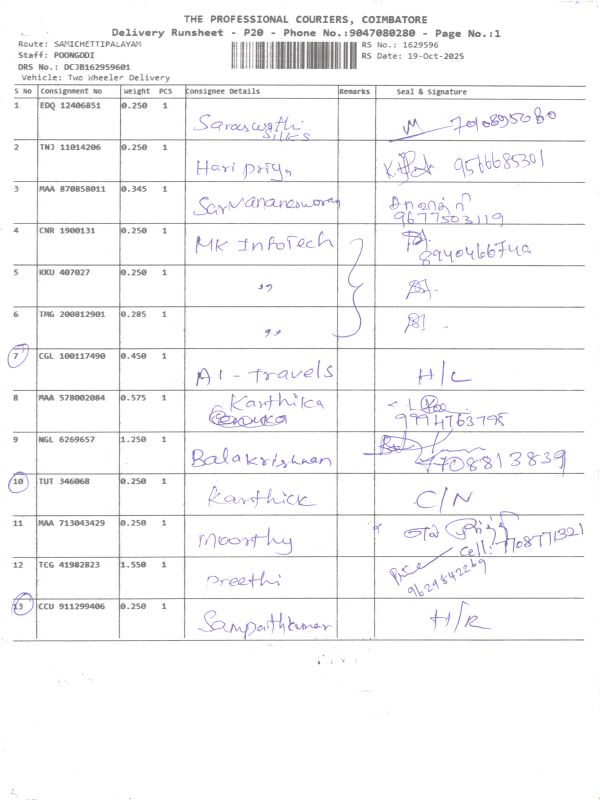 THE PROFESSIONAL COURIERS, COIMBATORE
Delivery Runsheet - P20 - Phone No.:9047080280 - Page No.:1
Route: SAMICHETTIPALAYAM RS No.: 1629596
Staff: POONGODI RS Date: 19-Oct-2025
DRS No.: DCJB162959601
Vehicle: Two Wheeler Delivery
S No Consignment No Weight PCS Consignee Details Remarks Seal & Signature
1 EDQ 12406851 0.250 1
Saraswathi 7010895080
silks
2 TNJ 11014206 0.250 1
Hari priya 9566685301
3 MAA 870858011 0.345 1
9677503119
4 CNR 1900131 0.250 1
MK InfoTech
5 KKU 407027 0.250 1
,,
6 TMG 200812901 0.285 1
,,
7 CGL 100117490 0.450 1
A1 - Travels H/C
8 MAA 578002084 0.575 1
Karthika
9994763795
9 NGL 6269657 1.250 1
Balakrishnan 7708813839
10 TUT 346068 0.250 1
Karthick C/N
11 MAA 713043429 0.250 1
Moorthy Cell:
12 TCG 41982823 1.550 1
Preethi
9629842269
13 CCU 911299406 0.250 1
Sampathkumar H/R